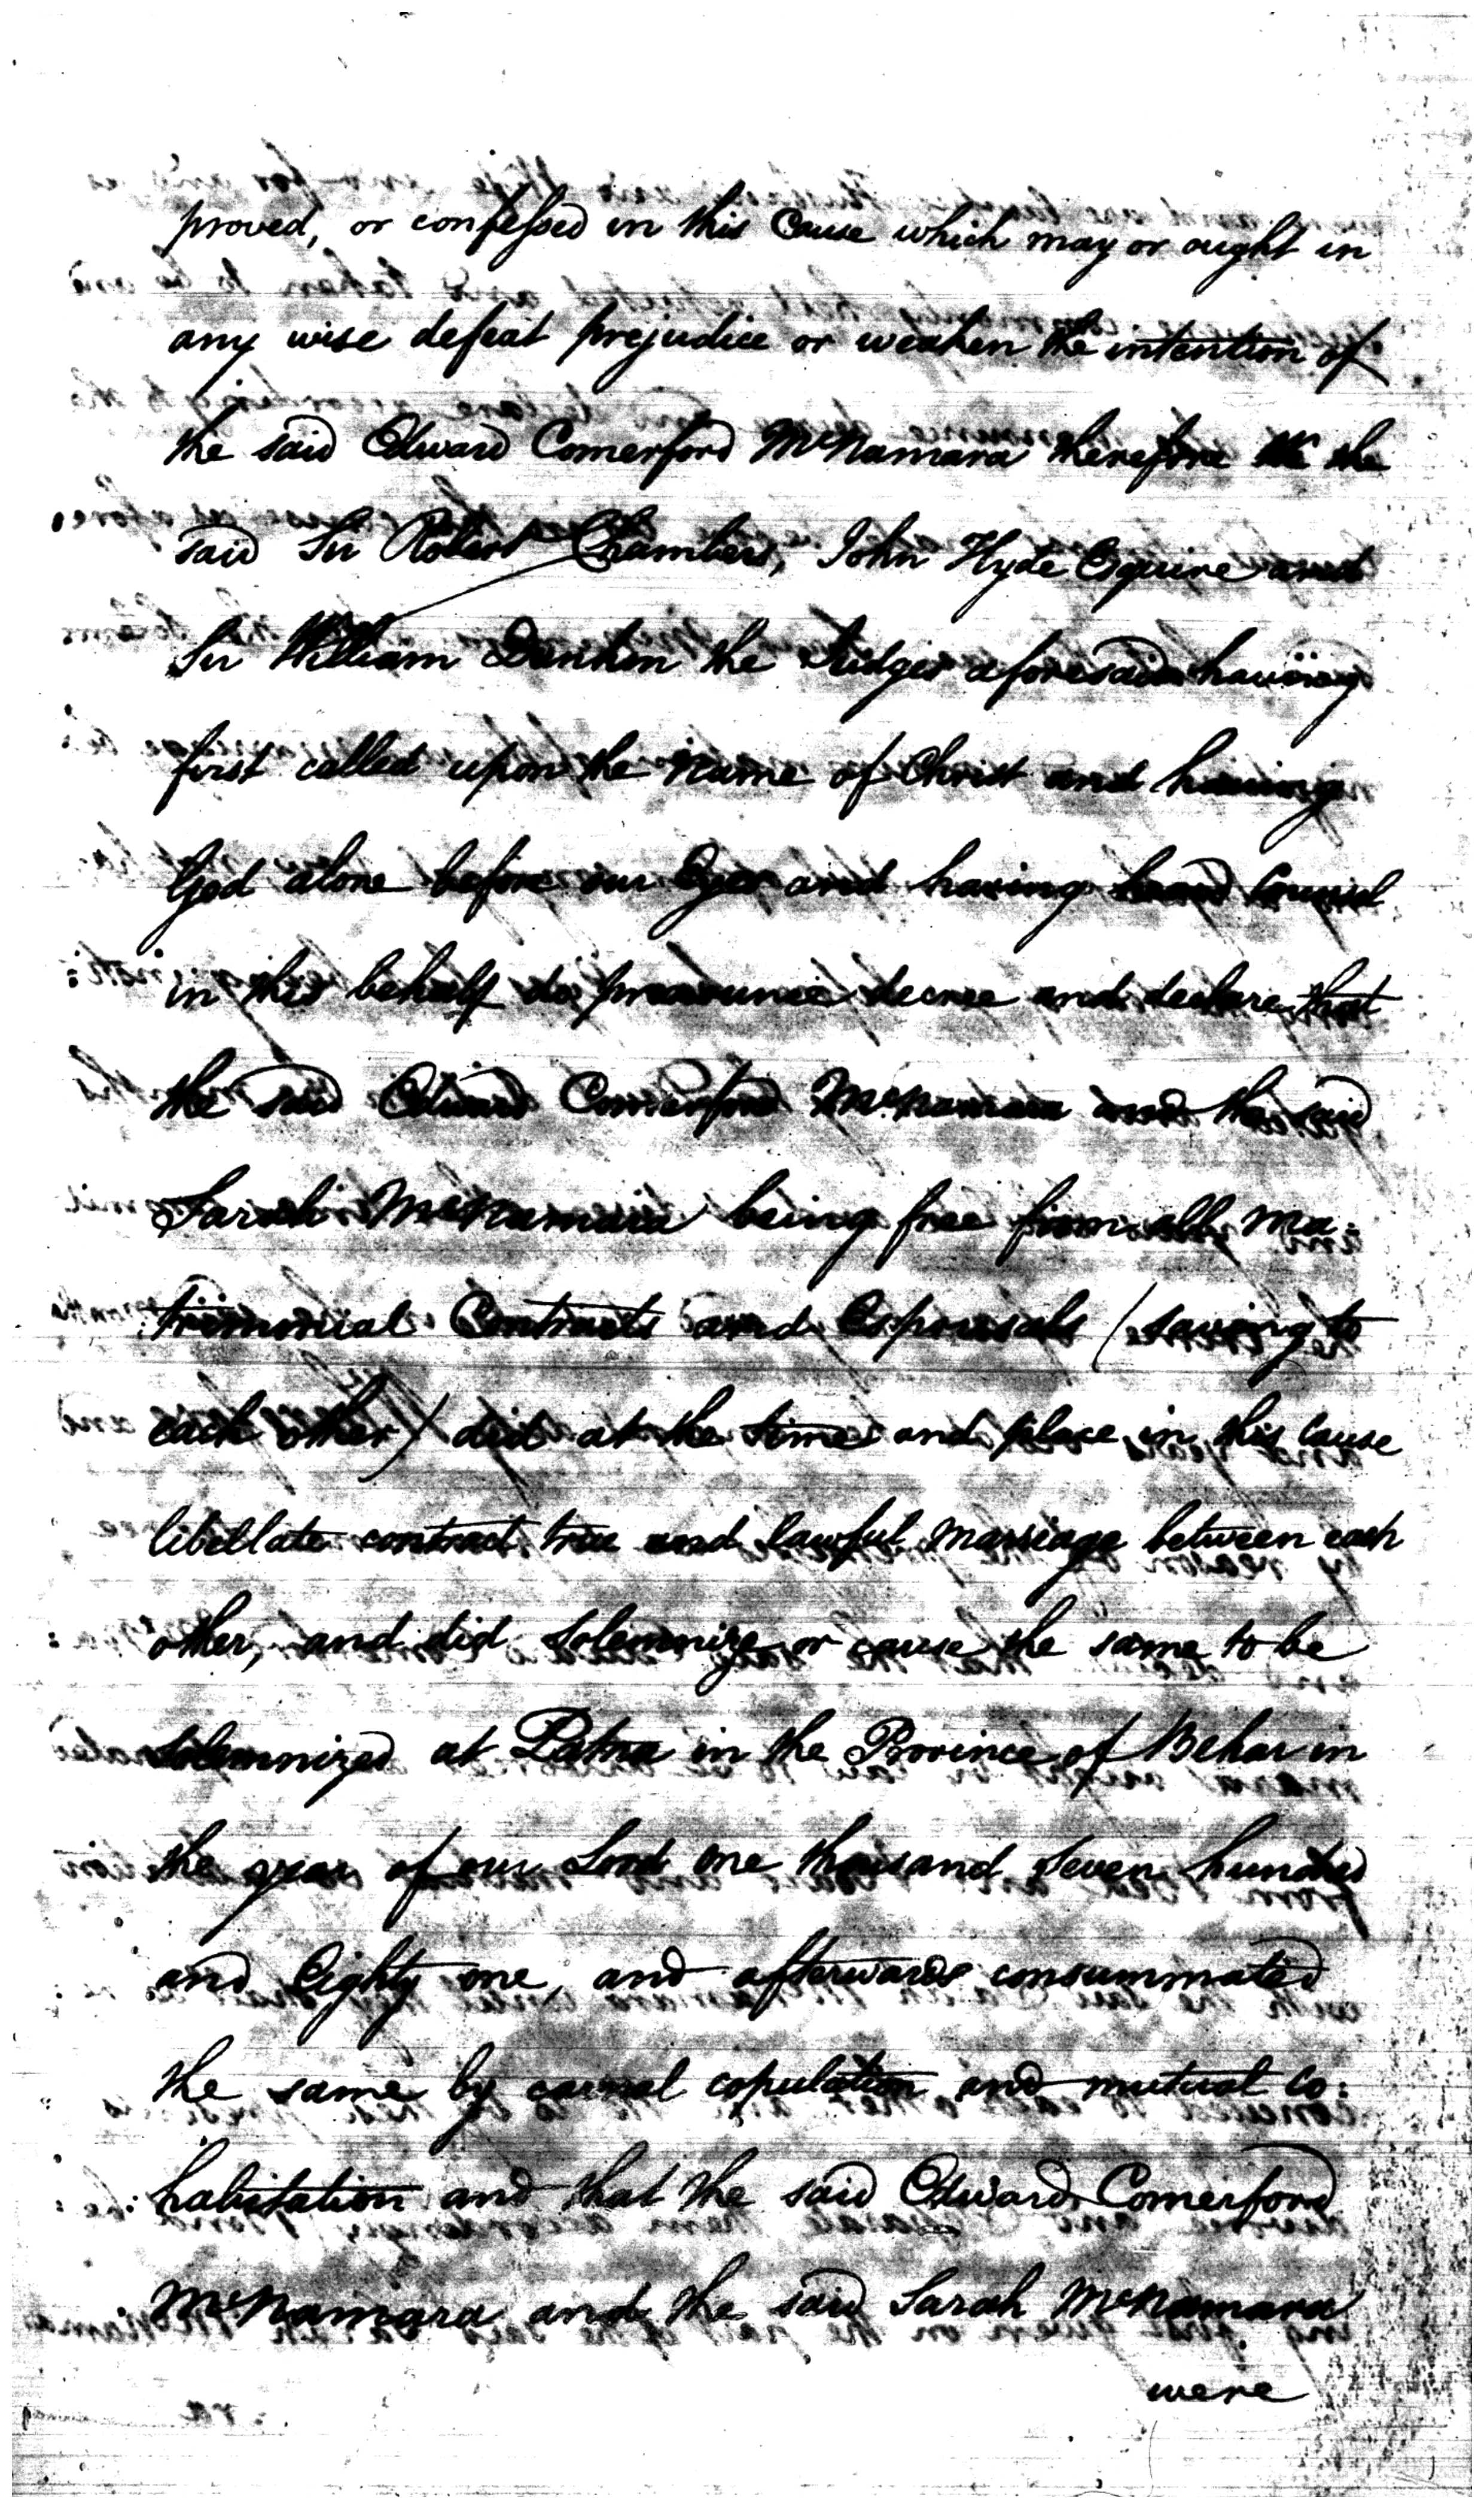 proved, or confessed in this Cause which may or ought in
any wise defeat prejudice or weaken the intention of
the said Edward Comerford McNamara therefore we the
said Sir Robert Chambers, John Hyde Esquire and
Sir William Dunkin the Judges aforesaid having
first called upon the Name of Christ and having
God alone before our Eyes and having heard Counsel
in this behalf do pronounce decree and declare that
the said Edward Comerford McNamara and the said
Sarah McNamara being free from all Ma:
trimonial Contracts and Espousals (saving to
each other) did at the time and place in this Cause
libellate contract true and lawful Marriage between each
other, and did solemnize or cause the same to be
solemnized at Patna in the Province of Behar in
the year of our Lord One thousand Seven hundred
and Eighty one, and afterwards consummated
the same by carnal copulation and mutual Co:
habitation and that the said Edward Comerford
McNamara and the said Sarah McNamara
were